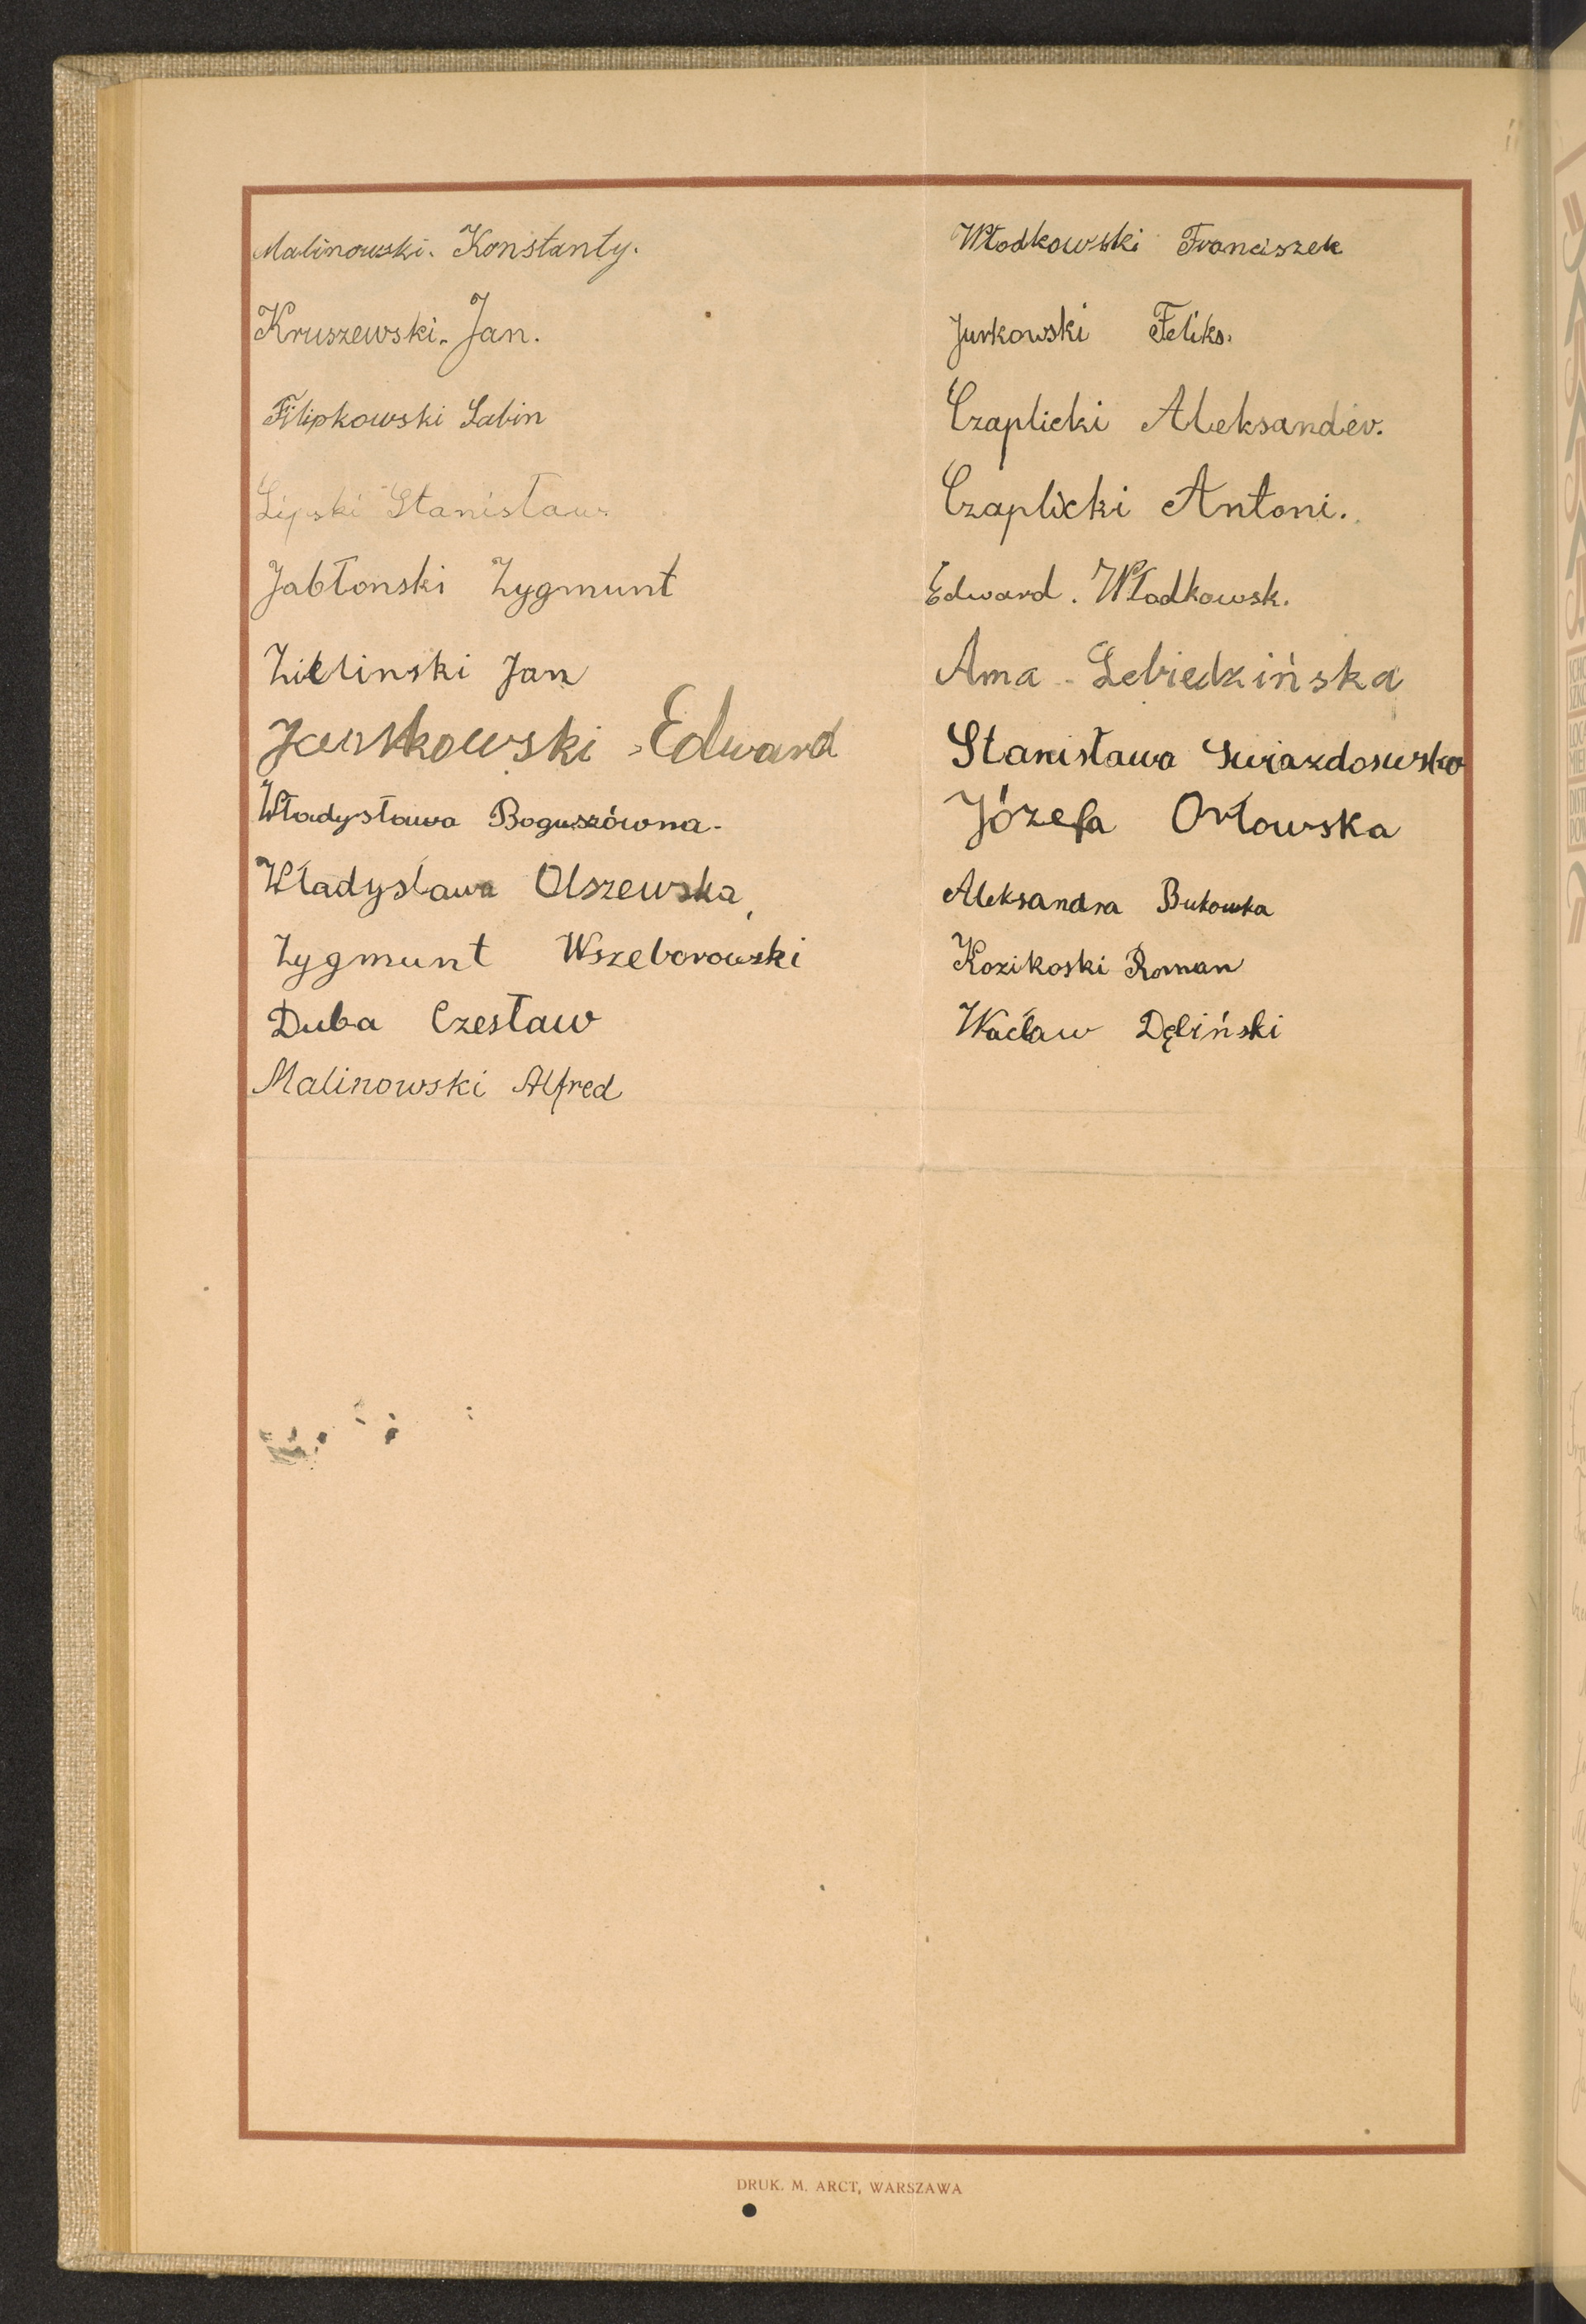 Malinowski. Konstanty.
Kruszewski. Jan.
Filipkowski Sabin
Lipski Stanisław
Jabłonski Zygmunt
Zielinski Jan
Jankowski Edward
Władysława Boguszówna.
Władysława Olszewska,
Zygmunt Wszeborowski
Duba Czesław
Malinowski Alfred
Włodkowski Franciszek
Jurkowski Feliks.
Czaplicki Aleksander.
Czaplicki Antoni.
Edward. Włodkowsk.
Anna Lebiedzińska
Stanisława Gwiazdowska
Józefa Orłowska
Aleksandra Bukowka
Kozikoski Roman
Wacław Dębiński
DRUK. M. ARCT, WARSZAWA